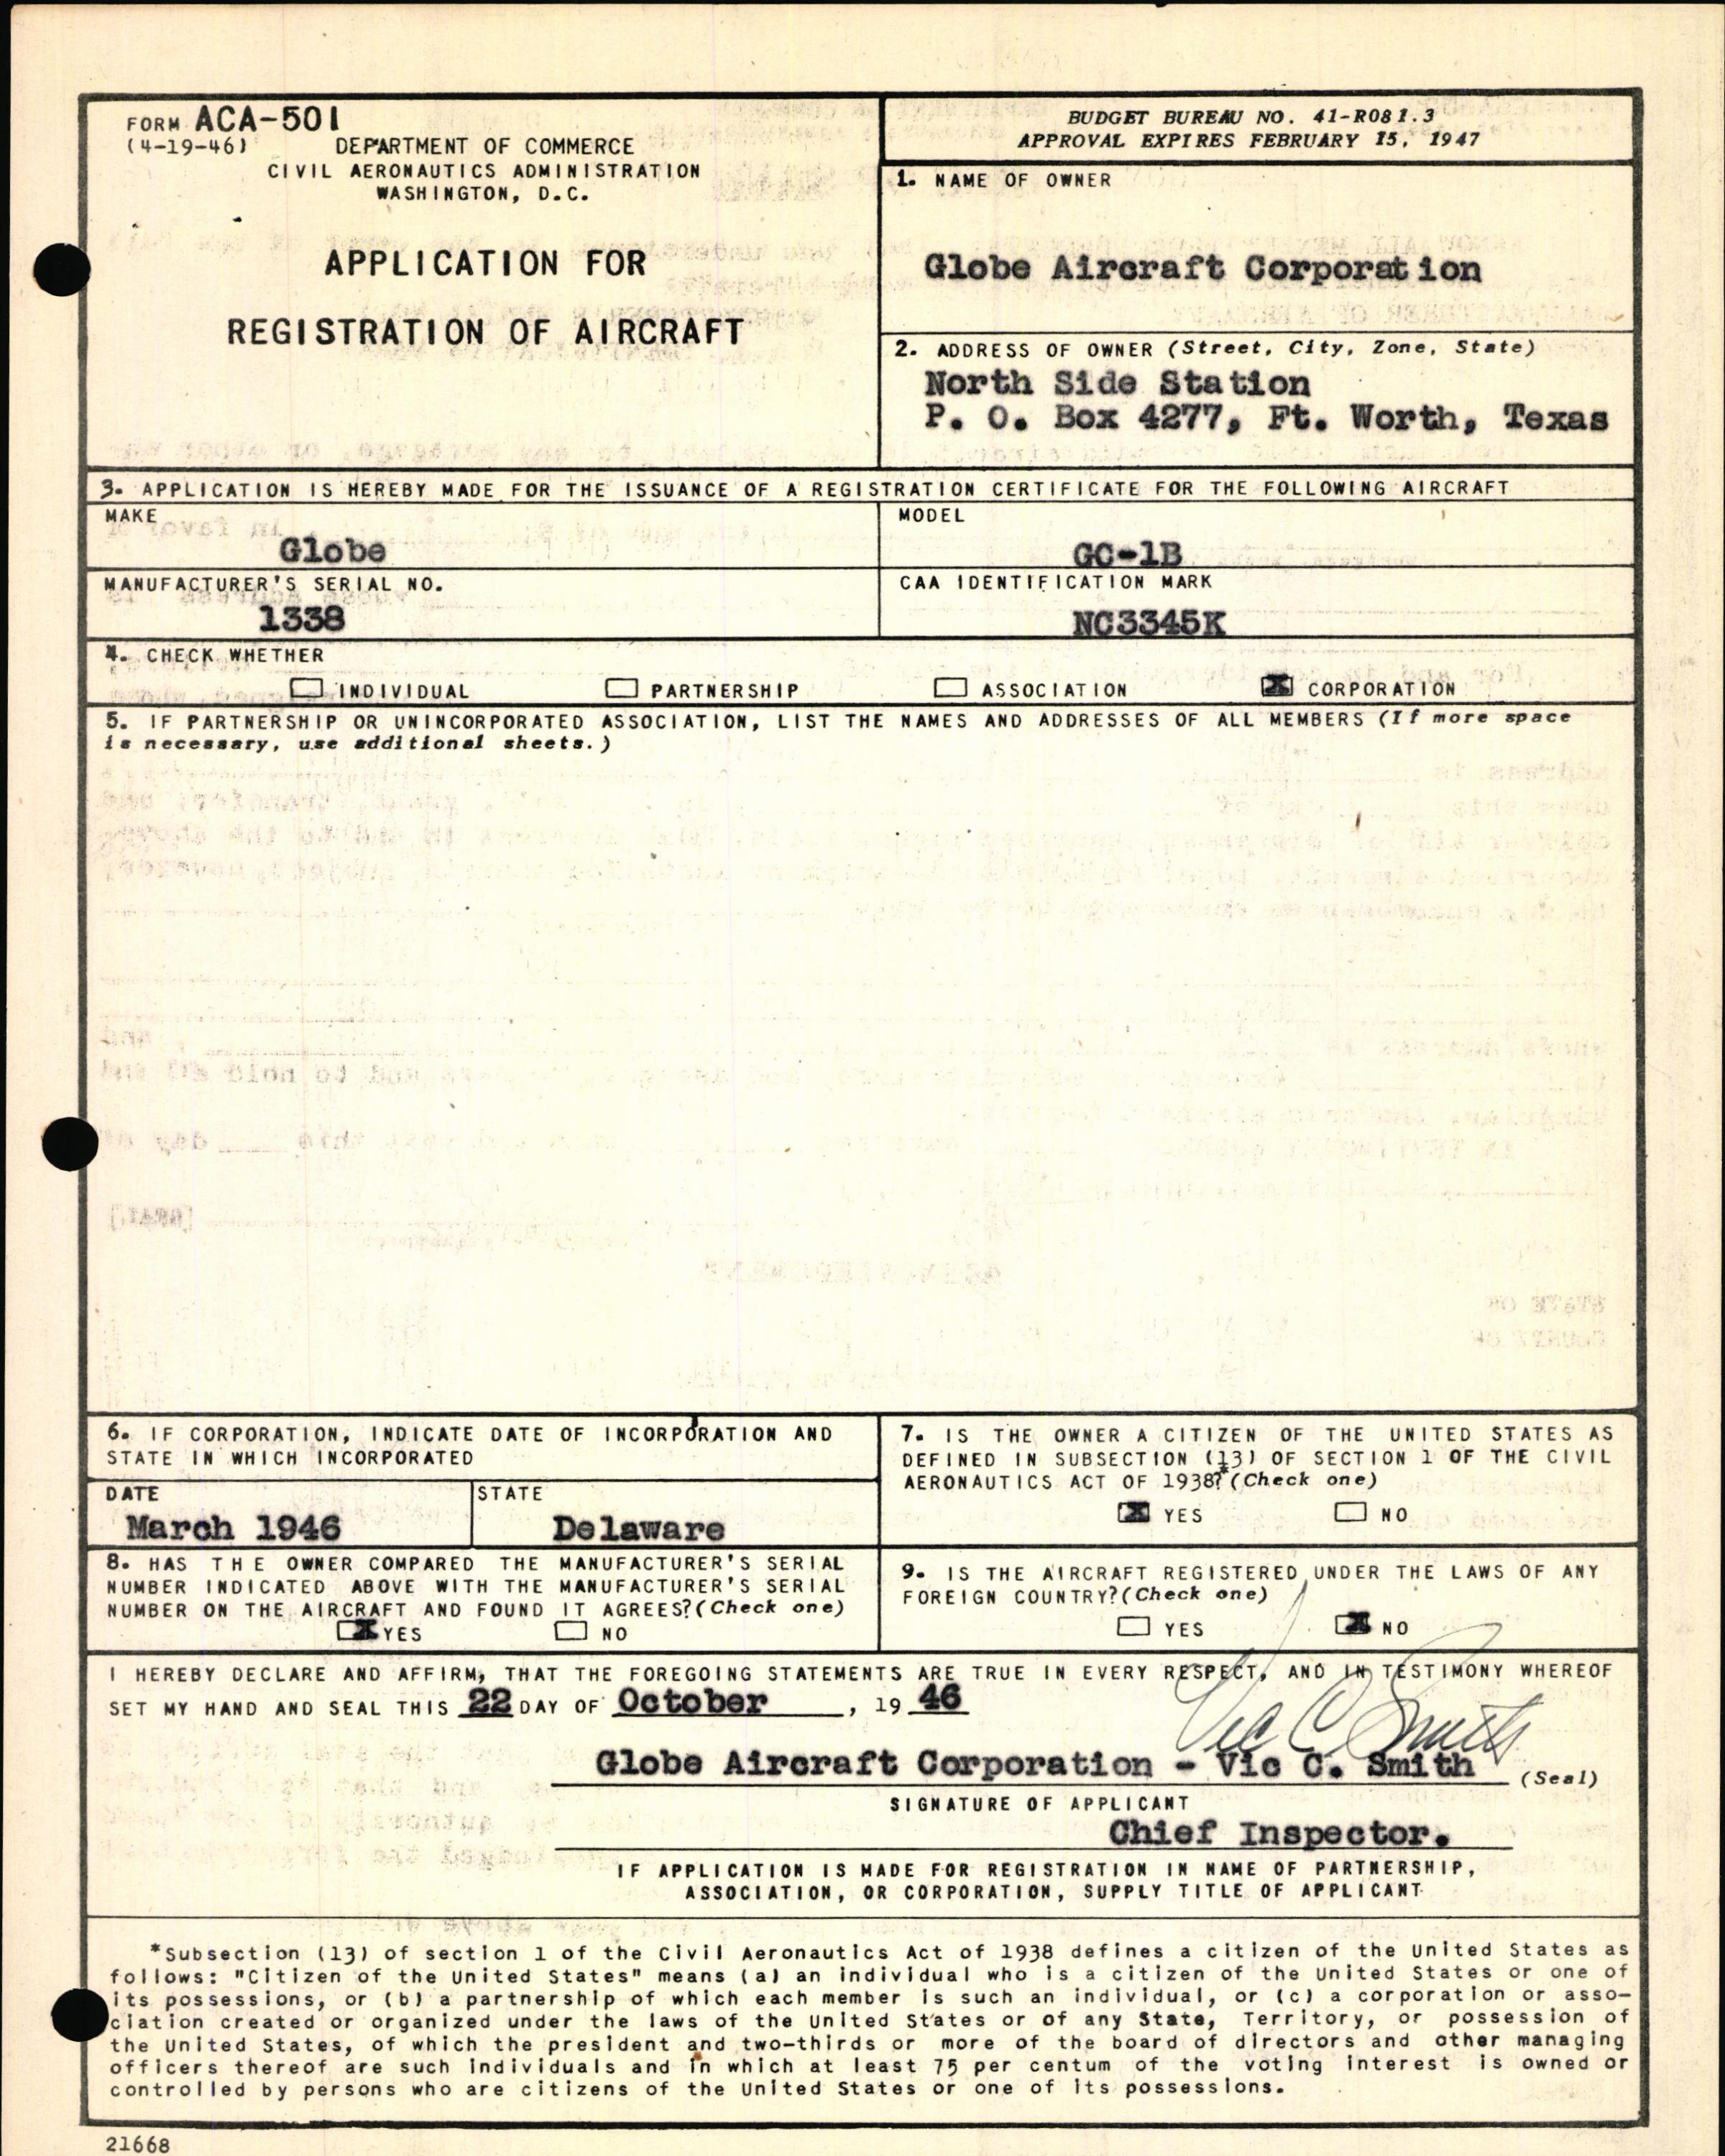 FORM ACA-501
(4-19-46)
DEPARTMENT OF COMMERCE
CIVIL AERONAUTICS ADMINISTRATION
WASHINGTON, D.C.
APPLICATION FOR
REGISTRATION OF AIRCRAFT
BUDGET BUREAU NO. 41-R081.3
APPROVAL EXPIRES FEBRUARY 15, 1947
1. NAME OF OWNER
Globe Aircraft Corporation
2. ADDRESS OF OWNER (Street, City, Zone, State)
North Side Station
P. O. Box 4277, Ft. Worth, Texas
3. APPLICATION IS HEREBY MADE FOR THE ISSUANCE OF A REGISTRATION CERTIFICATE FOR THE FOLLOWING AIRCRAFT
MAKE
Globe
MODEL
GC-1B
MANUFACTURER'S SERIAL NO.
1338
CAA IDENTIFICATION MARK
NC3345K
4. CHECK WHETHER
INDIVIDUAL PARTNERSHIP ASSOCIATION X CORPORATION
5. IF PARTNERSHIP OR UNINCORPORATED ASSOCIATION, LIST THE NAMES AND ADDRESSES OF ALL MEMBERS (If more space
is necessary, use additional sheets.)
6. IF CORPORATION, INDICATE DATE OF INCORPORATION AND
STATE IN WHICH INCORPORATED
DATE
March 1946
STATE
Delaware
7. IS THE OWNER A CITIZEN OF THE UNITED STATES AS
DEFINED IN SUBSECTION (13) OF SECTION 1 OF THE CIVIL
AERONAUTICS ACT OF 1938?* (Check one)
X YES NO
8. HAS THE OWNER COMPARED THE MANUFACTURER'S SERIAL
NUMBER INDICATED ABOVE WITH THE MANUFACTURER'S SERIAL
NUMBER ON THE AIRCRAFT AND FOUND IT AGREES? (Check one)
X YES NO
9. IS THE AIRCRAFT REGISTERED UNDER THE LAWS OF ANY
FOREIGN COUNTRY? (Check one)
YES X NO
I HEREBY DECLARE AND AFFIRM, THAT THE FOREGOING STATEMENTS ARE TRUE IN EVERY RESPECT, AND IN TESTIMONY WHEREOF
SET MY HAND AND SEAL THIS 22 DAY OF October, 19 46
Vic C. Smith
Globe Aircraft Corporation - Vic C. Smith (Seal)
SIGNATURE OF APPLICANT
Chief Inspector.
IF APPLICATION IS MADE FOR REGISTRATION IN NAME OF PARTNERSHIP,
ASSOCIATION, OR CORPORATION, SUPPLY TITLE OF APPLICANT
*Subsection (13) of section 1 of the Civil Aeronautics Act of 1938 defines a citizen of the United States as
follows: "Citizen of the United States" means (a) an individual who is a citizen of the United States or one of
its possessions, or (b) a partnership of which each member is such an individual, or (c) a corporation or asso-
ciation created or organized under the laws of the United States or of any State, Territory, or possession of
the United States, of which the president and two-thirds or more of the board of directors and other managing
officers thereof are such individuals and in which at least 75 per centum of the voting interest is owned or
controlled by persons who are citizens of the United States or one of its possessions.
21668